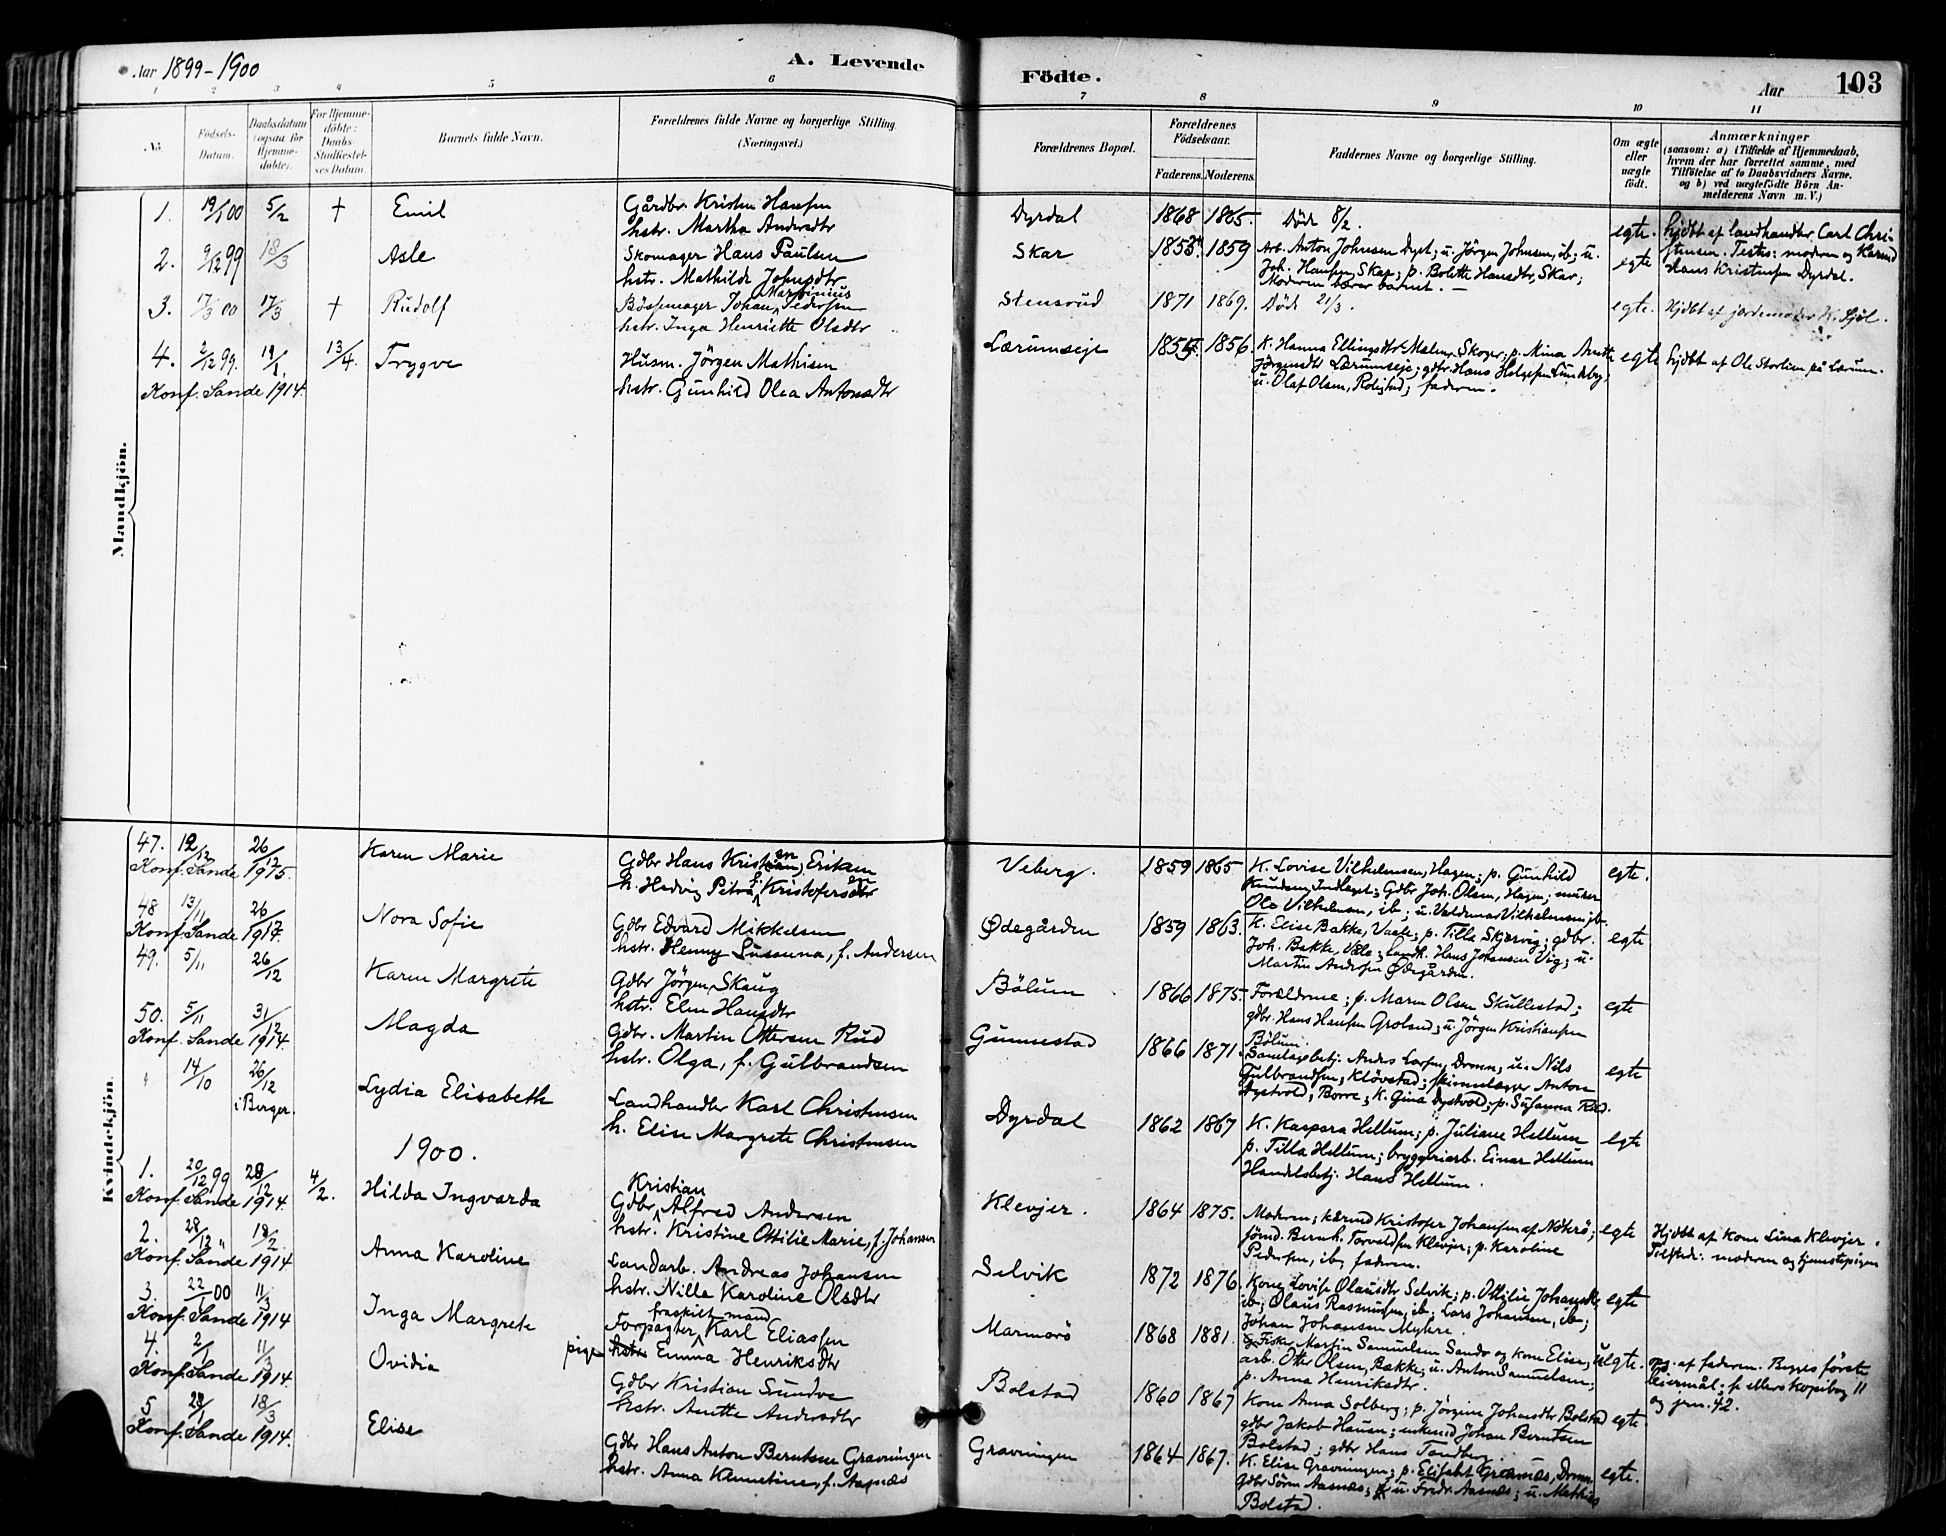 Aar 1899-1900
A. Levende
Födte.
Aar
103
1
2
3
4
5
6
7
8
9
10
11
No.
Födsels-
Datum.
Daabsdatum
(ogsaa for
Hjemme-
döbte).
For Hjemme-
döbte:
Daabs-
Stadfæstel-
ses Datum.
Barnets fulde Navn.
Forældrenes fulde Navne og borgerlige Stilling.
(Næringsvei.)
Forældrenes Bopæl.
Forældrenes
Födselsaar.
Faderens.
Moderens.
Faddernes Navne og borgerlige Stilling.
Om ægte
eller
uægte
födt.
Anmærkninger
(saasom: a) i Tilfælde af Hjemmedaab,
hvem der har forrettet samme, med
Tilföielse af to Daabsvidners Navne,
og b) ved uægtefödte Börn An-
melderens Navn m. V.)
Mandkjön.
1. 19/1 00 5/2 † Emil
Gårdbr. Kristen Hansen
hstr. Martha Andersdtr
Dyrdal 1868 1865. Död 8/2. egte.
hjdbt af landhandler Carl Chri-
stensen. Testes: moderen og Karen
Hans Kristensen Dyrdal.
2. 9/12 99 18/3 Asle
Skomager Hans Paulsen
hstr. Mathilde Johnsdtr
Skar 1859
Arb. Anton Johnsen Dyst; u. Jörgen Johnsen, ib; u.
Joh. Hansen, Skar; p. Bolette Hansdtr, Skar;
Moderen bærer barnet. —
egte
3. 17/3 00 17/3 † Rudolf
Martinius
Bössemager Johan Pedersen
hstr. Inga Henriette Olsdtr
Stensrud 1871 1869. Död 21/3. egte. Hjdbt af jordemoder
4. 2/12 99. 19/1. 13/4. Trygve
Husm. Jörgen Mathisen
hstr. Gunhild Olea Antonsdtr
Konf. Sande 1914.
Lærumseje 1856
K. Hanna Ellingsdtr Skoger; p. Mina Anette
Jörgensdtr Lærumseje; gdbr. Hans Helgesen
u. Olaf Olsen, Rolighed; faderen.
egte hjdbt af Ole Stortien på Lærum.
Kvindekjön.
47. 12/12 26/12 Karen Marie
Konf. Sande 1915.
Gdbr Hans Kristian Eriksen
h. Hedvig Petra Kristofersdtr
Veberg. 1859 1865
K. Lovise Vilhelmsen, Hagen; p. Gunhild
Knudsen, Indlaget; Gdbr Joh. Olsen, Hagen; murer
Ole Vilhelmsen, ib; u. Valdemar Vilhelmsen ib.
egte.
48 13/11 26/12 Nora Sofie
Konf. Sande 1914.
Gdbr Edvard Mikkelsen
hstr. Henny Susanna, f. Andersen
Ødegården 1859 1863.
K. Elise Bakke, Vaale; p. Tilla Skjærvig; gdbr.
Joh. Bakke, Våle; Landh. Hans Johansen Vig; u.
Martin Andersen Ødegården.
egte
49. 5/11 26/12 Karen Margrete
Gdbr Jörgen Skaug
hstr. Elen Hansdtr
Bölum 1866 1875.
Forældrene; p. Maren Olsen Skullestad;
gdbr. Hans Hansen Groland; u. Jörgen Kristiansen
Bölum.
egte
50. 5/11 31/12 Magda
Konf. Sande 1914.
Gdbr. Martin Ottersen Rud
hstr. Olga, f. Gulbrandsen
Gunnestad 1866 1871.
Samlagsbetj. Anders Larsen, Drmn; u. Nils
Gulbrandsen, Klövstad; skinnlægger Anton
Dystvold, Borre; k. Gina Dystvold; p. Susanna Rud.
egte
" 14/10 26/12 i Berger. Lydia Elisabeth
Landhandler Karl Christensen
h. Elise Margrete Christensen
Dyrdal 1862 1867
K. Kaspara Hellum; p. Juliane Hellum
p. Tilla Hellum; bryggeriarb. Einar Hellum
Handelsbetj. Hans Hellum.
egte
1900.
1. 20/12 99 28/12 4/2. Hilda Ingvarda
Konf. Sande 1914.
Kristian
Gdbr Alfred Andersen
hstr. Kristine Ottilie Marie, f. Johansen
Klevjer. 1864 1875.
Moderen; kærnd Kristofer Johansen af Nötterö;
fömd. Bernh. Torvaldsen Klevjer; p. Karoline
Pedersen, ib, faderen.
egte
Hjdbt af kone Lina Klevjer.
Tilsted: moderen og tjenestepigen
2. 28/12 " 18/2. Anna Karoline
Konf. Sande 1914
Landarb. Andreas Johansen
hstr. Nilla Karoline Olsdtr
Selvik 1872 1876
Kone Lovise Olausdtr Selvik; p. Ottilie Johansdtr
ib; Olaus Rasmussen, ib; Lars Johansen, ib;
Johan Johansen Myhre.
egte
3. 22/1 00 11/3 Inga Margrete
Konf. Sande 1914
fraskilt mand
Forpagter Karl Eliassen
pige hstr. Emma Henriksdtr
1868 1881.
Fisker Martin Samuelsen Sando og kone Elise;
arb. Otter Olsen, Bække; u. Anton Samuelsen;
p. Anna Henriksdtr.
uegte.
og. af faderen. Begges förste
leiermål; se ellers kopibog 11
og jrn. 42.
4. 2/1 11/3 Ovidia
Konf. Sande 1914.
Gdbr Kristian Sundve
hstr. Anette Andersdtr
Bolstad 1860 1867
Kone Anna Solberg; p. Jörgine Johansdtr Bolstad
gdbr Jakob Hansen; enkemd Johan Berntsen
Bolstad; gdbr Hans Tandberg.
egte.
5 28/1 18/3 Elise
Konf. Sande 1914.
Gdbr Hans Anton Berntsen Gravningen
hstr. Anna Klemetine, f. Aasnæs
Gravningen 1864 1867.
K. Elise Gravningen; p. Elisabet Grasnæs, Drmn.
Gdbr Sören Aasnæs; u. Fredr. Aasnæs; u. Mathias
Bolstad.
egte.